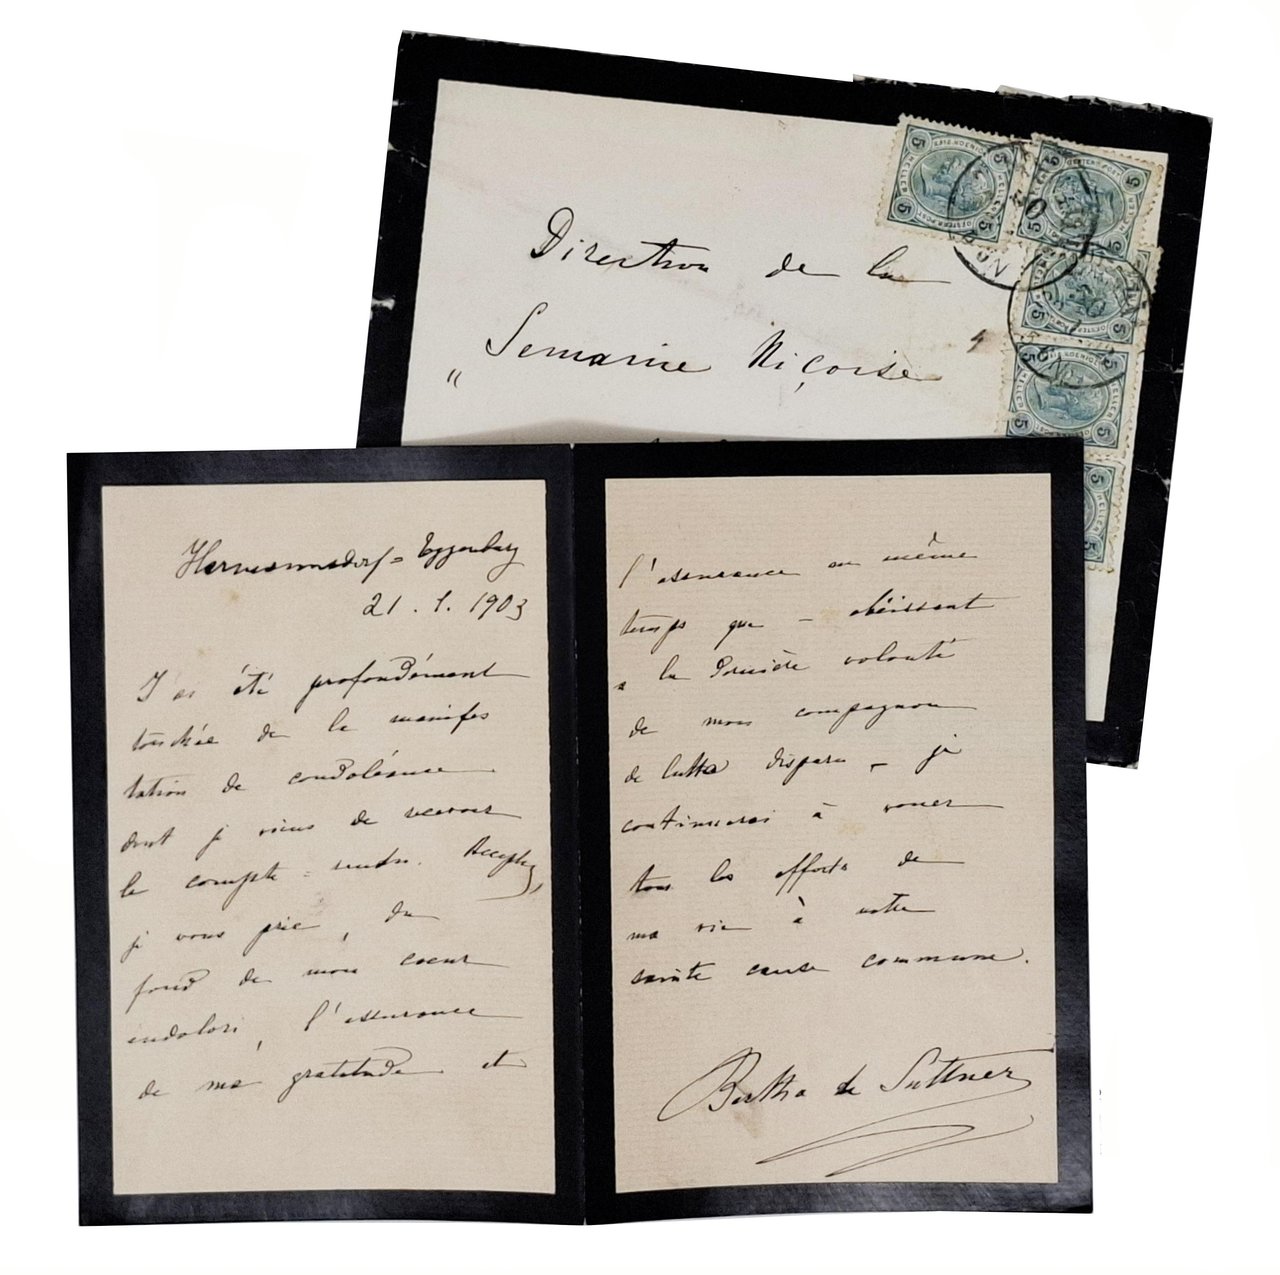 Direction de la
"Semaine Niçoise"
5 5 5 HELLER
5 5 5 HELLER
5 5 HELLER
5 5 5 HELLER
5 HELLER
Hermannsdorf-Eggenburg
21. 1. 1903
J'ai été profondément
touchée de la manifes
tation de condoléance
dont je viens de recevoir
le compte-rendu. Acceptez,
je vous prie, du
fond de mon coeur
endolori, l'assurance
de ma gratitude et
l'assurance en même
temps que - obéissant
a la dernière volonté
de mon compagnon
de lutte disparu - je
continuerai à vouer
tous les efforts de
ma vie à notre
sainte cause commune.
Bertha de Suttner